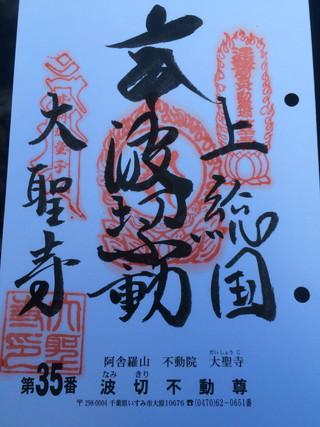 上総国
波切不動
大聖寺
阿舎羅山 不動院 大聖寺
だいしょうじ
なみ きり
第35番 波切不動尊
〒298-0004 千葉県いすみ市大原10676 ☎(0470)62-0651番